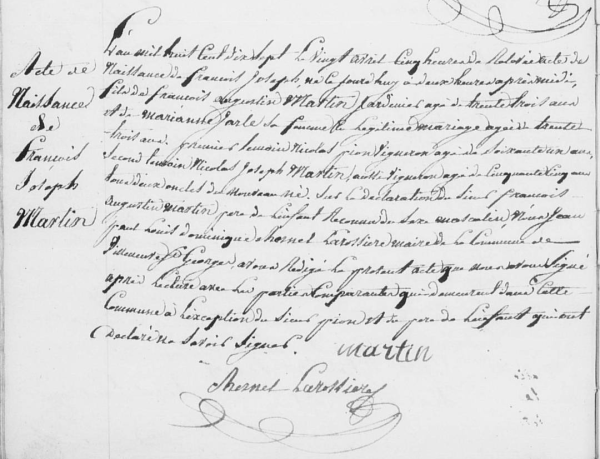 Acte de
Naissance
de
François
Joseph
Martin
L'an mil huit Cent dix sept le Vingt avril Cinq heures du Soir acte de
Naissance de françois Joseph né Ce jourd'huy à deux heures après midi
fils de françois augustin Martin jardinier agé de trente trois ans
et de marianne Sa femme En légitime mariage agée de trente
trois ans. premier témoin Nicolas pion Vigneron agé de Soixante un ans,
Second témoin Nicolas Joseph Martin, aussi Vigneron agé de Cinquante Cinq ans
tous deux oncles du Nouveau né. Sur la déclaration du Sieur françois
augustin martin pere de L'enfant Reconnu du Sexe masculin. Nous Jean
paul Louis dominique Thornel Larossiere maire de La Commune de
St George, avons Rédigé Le present acte que nous avons Signé
après Lecture avec Les parties Comparantes qui demeurent dans Cette
Commune à L'exception du Sieur pion et du pere de L'enfant qui ont
Declaré ne Savoir Signer.
martin
Larossiere